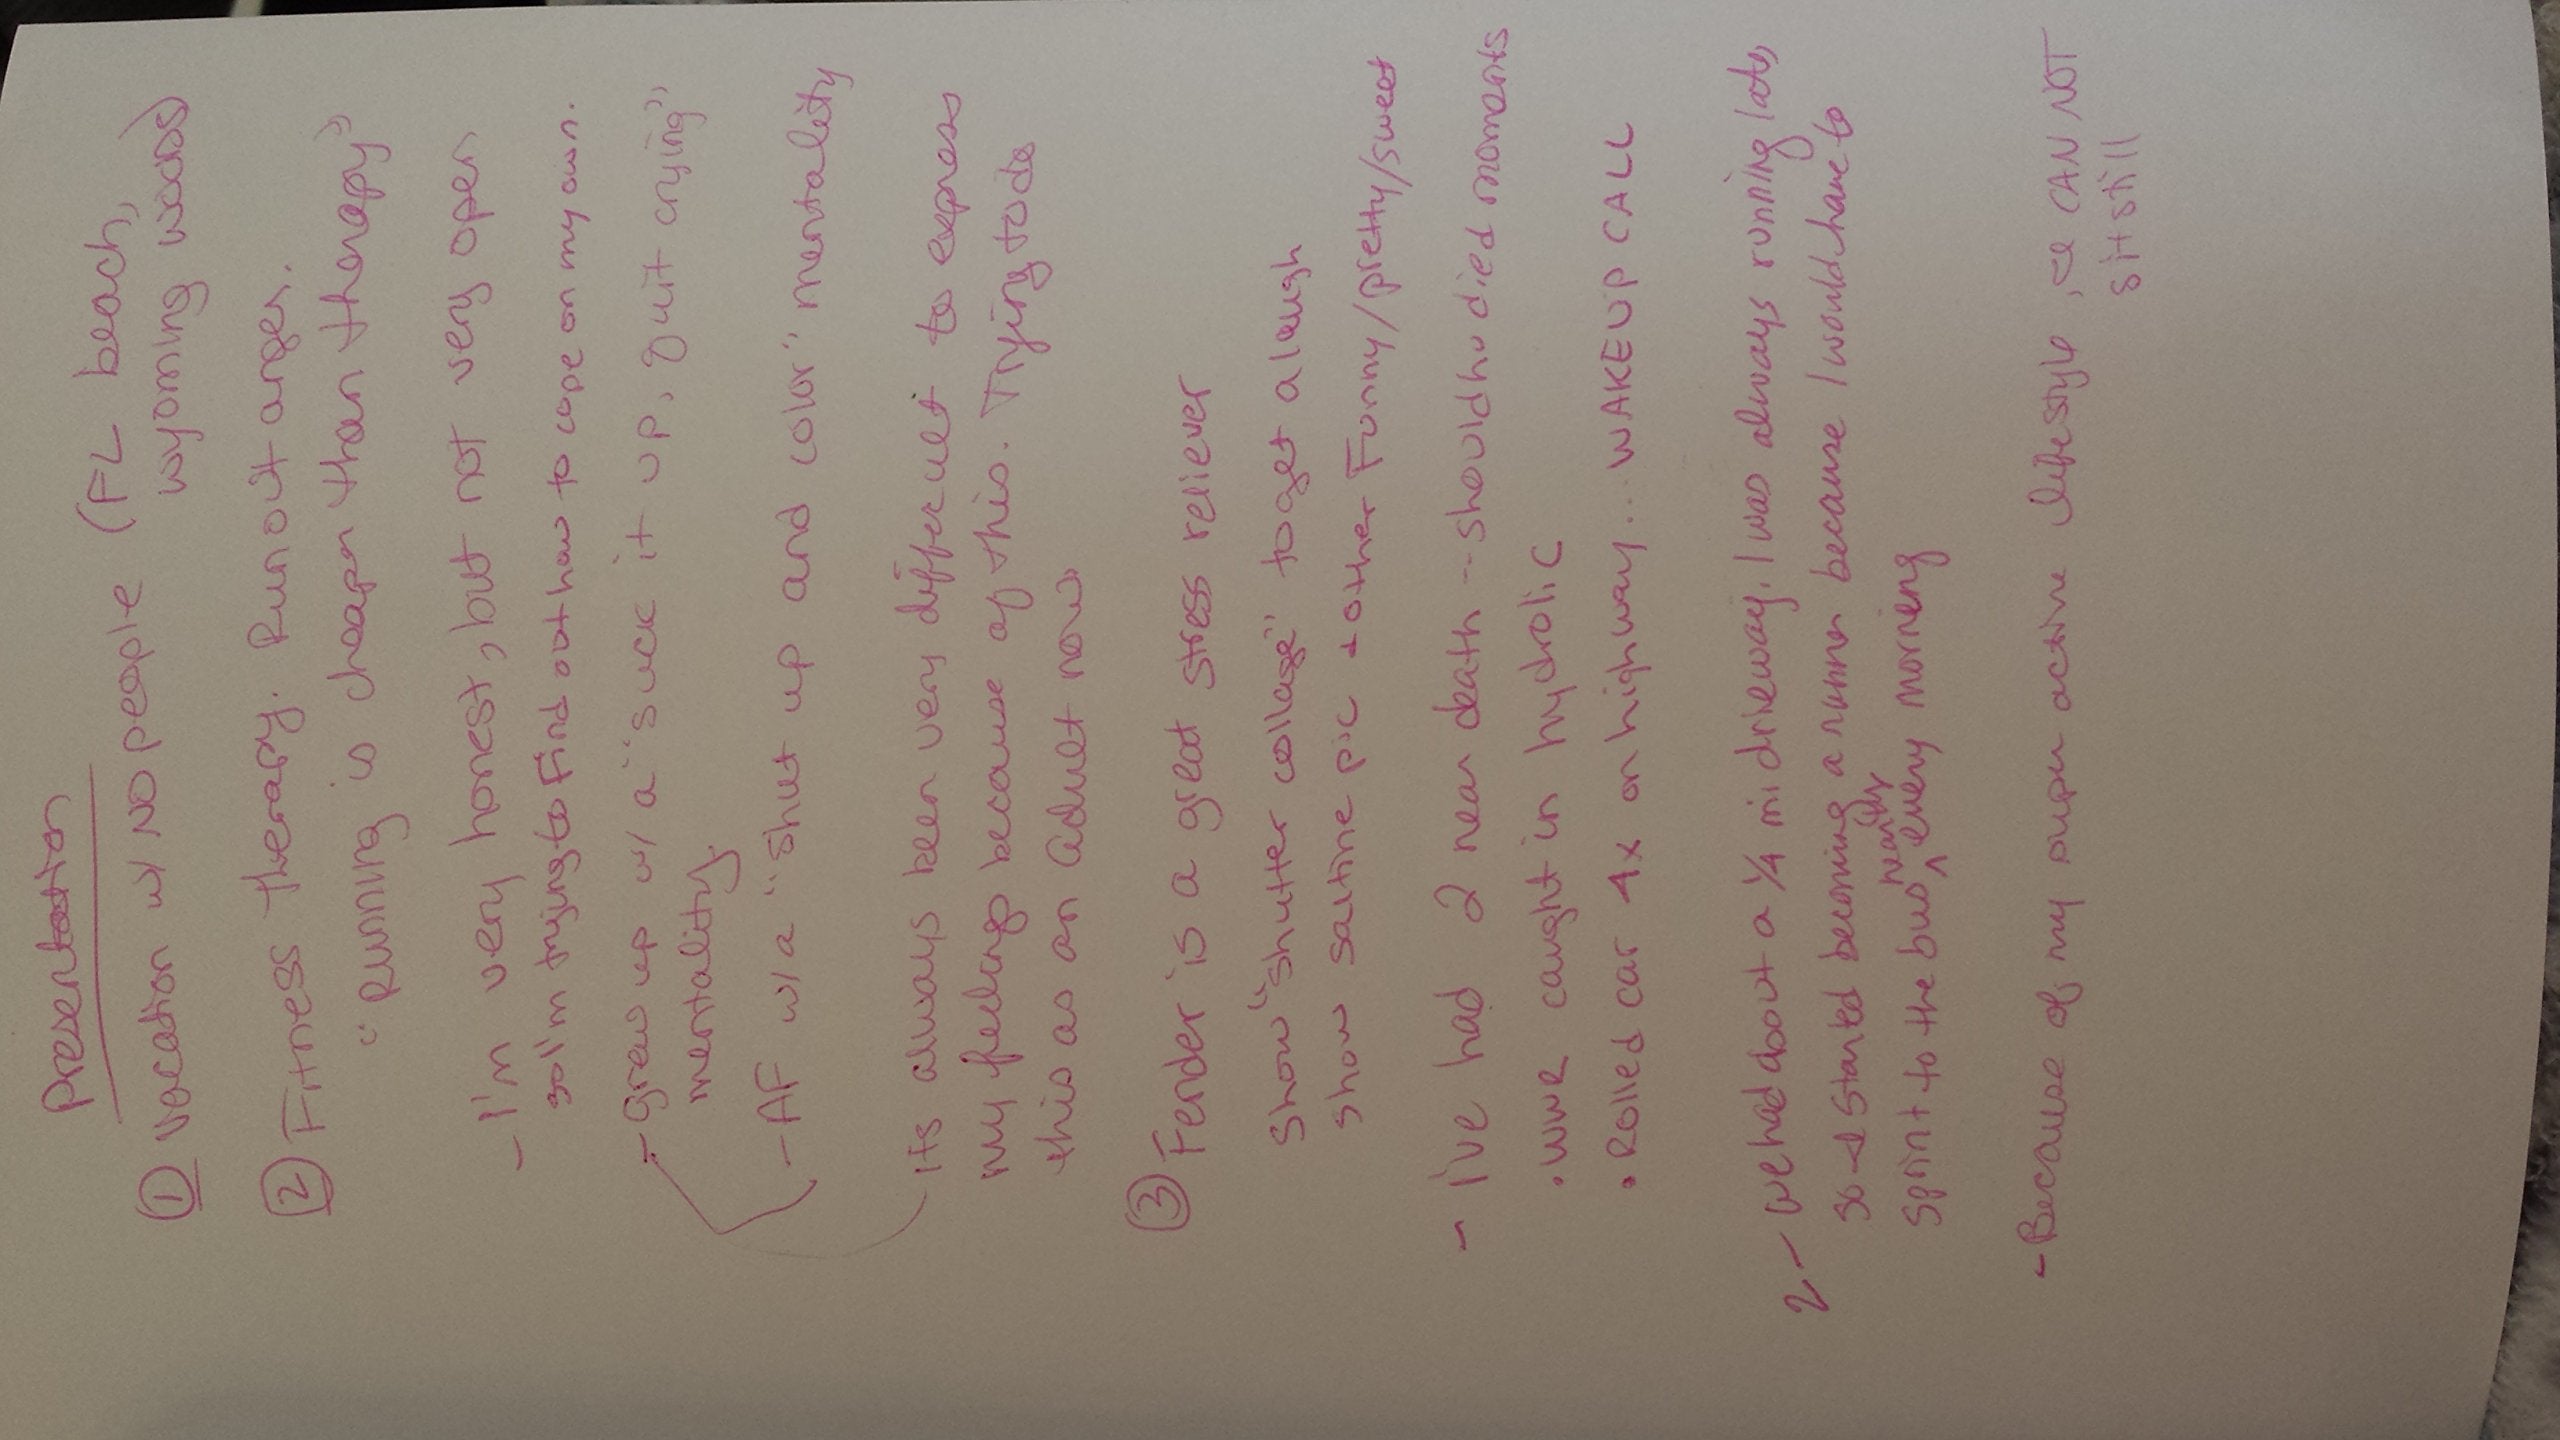 Presentation
① Vacation w/ NO people (FL beach,
wyoming woods)
② Fitness therapy. Run out anger.
"Running is cheaper than therapy"
- I'm very honest, but not very open
so I'm trying to find out how to cope on my own.
- grew up w/ a "suck it up, quit crying"
mentality
- AF w/ a "shut up and color" mentality
its always been very difficult to express
my feelings because of this. Trying to do
this as an adult now
③ Fender is a great stress reliever
show "shutter collage" to get a laugh
show saltine pic + other Funny/pretty/sweet
- I've had 2 near death -- should hv died moments
• WWR caught in hydrolic
• Rolled car 4x on highway... WAKE UP CALL
2 - we had about a 1/4 mi driveway. I was always running late,
so I started becoming a runner because I would have to
sprint to the bus nearly every morning
- Because of my super active lifestyle, I CAN NOT
sit still